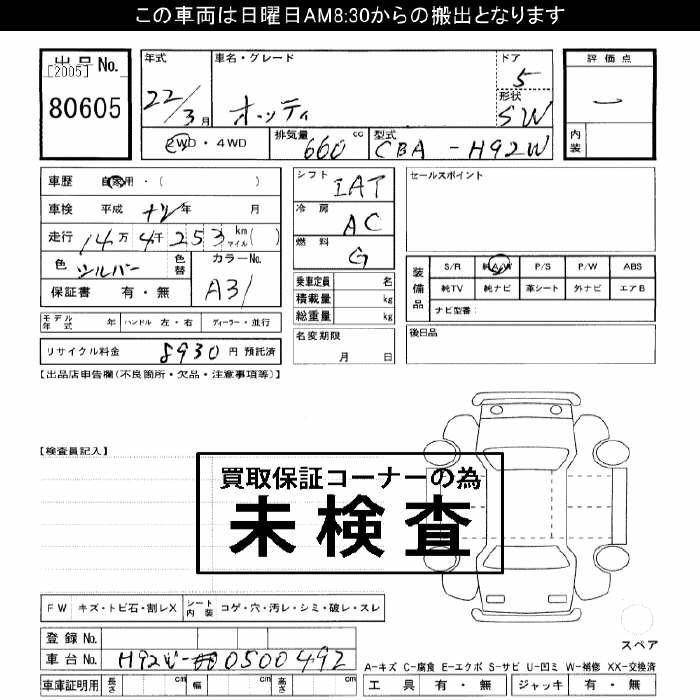 この車両は日曜日AM8:30からの搬出となります
出品No. [2005]
80605
年式 22/3月
車名・グレード オッティ
ドア 5
形状 SW
2WD・4WD
排気量 660 cc
型式 CBA-H92W
評価点 一
内装
車歴 自家用・( )
車検 平成 ナシ年 月
走行 14万 4千 253 km マイル( )
色 シルバー
色替
カラーNo. A31
保証書 有・無
シフト IAT
冷房 AC
燃料 G
乗車定員 名
積載量 kg
総重量 kg
名変期限
月 日
セールスポイント
装備品
S/R 純A/W P/S P/W ABS
純TV 純ナビ 革シート 外ナビ エアB
ナビ型番:
後日品
モデル年式 年 ハンドル 左・右 ディーラー・並行
リサイクル料金 8930 円 預託済
【出品店申告欄(不良箇所・欠品・注意事項等)】
【検査員記入】
買取保証コーナーの為
未検査
FW キズ・トビ石・割レX シート内装 コゲ・穴・汚レ・シミ・破レ・スレ
登録No.
車台No. H92W-0500492
車庫証明用 長さ cm 幅 cm 高さ cm
スペア
A-キズ C-腐食 E-エクボ S-サビ U-凹ミ W-補修 XX-交換済
工具 有・無 ジャッキ 有・無